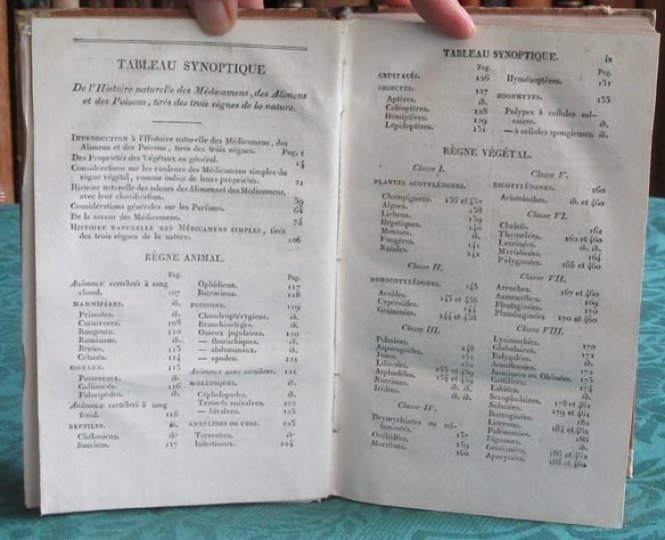 TABLEAU SYNOPTIQUE
De l'Histoire naturelle des Médicamens, des Alimens
et des Poisons, tirés des trois règnes de la nature.
INTRODUCTION à l'Histoire naturelle des Médicamens, des
Alimens et des Poisons, tirés des trois règnes. Pag. 1
Des Propriétés des Végétaux en général. 14
Considérations sur les couleurs des Médicamens simples du
règne végétal, comme indice de leurs propriétés. 21
Histoire naturelle des odeurs des Alimens et des Médicamens,
avec leur classification. 39
Considérations générales sur les Parfums. 64
De la saveur des Médicamens. 74
HISTOIRE NATURELLE DES MÉDICAMENS SIMPLES, tirés
des trois règnes de la nature. 106
RÈGNE ANIMAL.
Pag.
Animaux vertébrés à sang
chaud. 107
MAMMIFÈRES. ib.
Primates. ib.
Carnivores. 108
Rongeurs. 110
Ruminans. ib.
Brutes. 113
Cétacés. 114
OISEAUX. 115
Passereaux. ib.
Gallinacés. 116
Palmipèdes. ib.
Animaux vertébrés à sang
froid. 116
REPTILES. ib.
Chéloniens. ib.
Sauriens. 117
Pag.
Ophidiens. 117
Batraciens. 118
POISSONS. 119
Chondroptérygiens. ib.
Branchiostèges. ib.
Osseux jugulaires. 120
— thorachiques. ib.
— abdominaux. ib.
— apodes. 121
Animaux sans vertèbres. 121
MOLLUSQUES. ib.
Céphalopodes. ib.
Testacés univalves. 122
— bivalves. 123
ANNELIDES OU VERS. ib.
Terrestres. ib.
Intestinaux. 124
TABLEAU SYNOPTIQUE. ix
Pag.
CRUSTACÉS. 126
INSECTES. 127
Aptères. ib.
Coléoptères. 128
Hémiptères. 129
Lépidoptères. 131
Pag.
Hyménoptères. 131
ZOOPHYTES. 133
Polypes à cellules cal-
caires. ib.
— à cellules spongieuses. ib.
RÈGNE VÉGÉTAL.
Classe I.
PLANTES ACOTYLÉDONES.
Champignons. 136 et 457
Algues. 138
Lichens. 139
Hépatiques. 140
Mousses. ib.
Fougères. 141
Naïades. 142
Classe II.
MONOCOTYLÉDONES. 143
Aroïdes. 143 et 458
Cypéroïdes. 144
Graminées. 144 et 458
Classe III.
Palmiers.
Asparagoïdes. 148
Joncs. 151
Liliacées.
Asphodèles. 153 et 459
Narcisses. 154 et 459
Iridées. ib.
Classe IV.
Drymyrhizées ou sci-
taminées.
Orchidées. 157
Morrènes. 159
160
Classe V.
DICOTYLÉDONES. 160
Aristoloches. ib. et 460
Classe VI.
Chalefs. 161
Thymelées. 162 et 460
Laurinées. ib.
Myristicées. 164
Polygonées. 166 et 460
Classe VII.
Arroches. 167 et 460
Amaranthes. 169
Plantaginées. 170
Plumbaginées 170 et 460
Classe VIII.
Lysimachies. 170
Globulaires. 171
Polygalées. ib.
Acanthes. ib.
Jasminées ou Oléinées. 172
Gattiliers. 173
Labiées. 174
Scrophulaires. ib.
Solanées. 178 et 461
Borraginées. 179 et 461
Liserons. 182
Polémonies. 184 et 462
Bignones. 186
Gentianées. ib.
Apocynées. 186 et 462
188 et 462